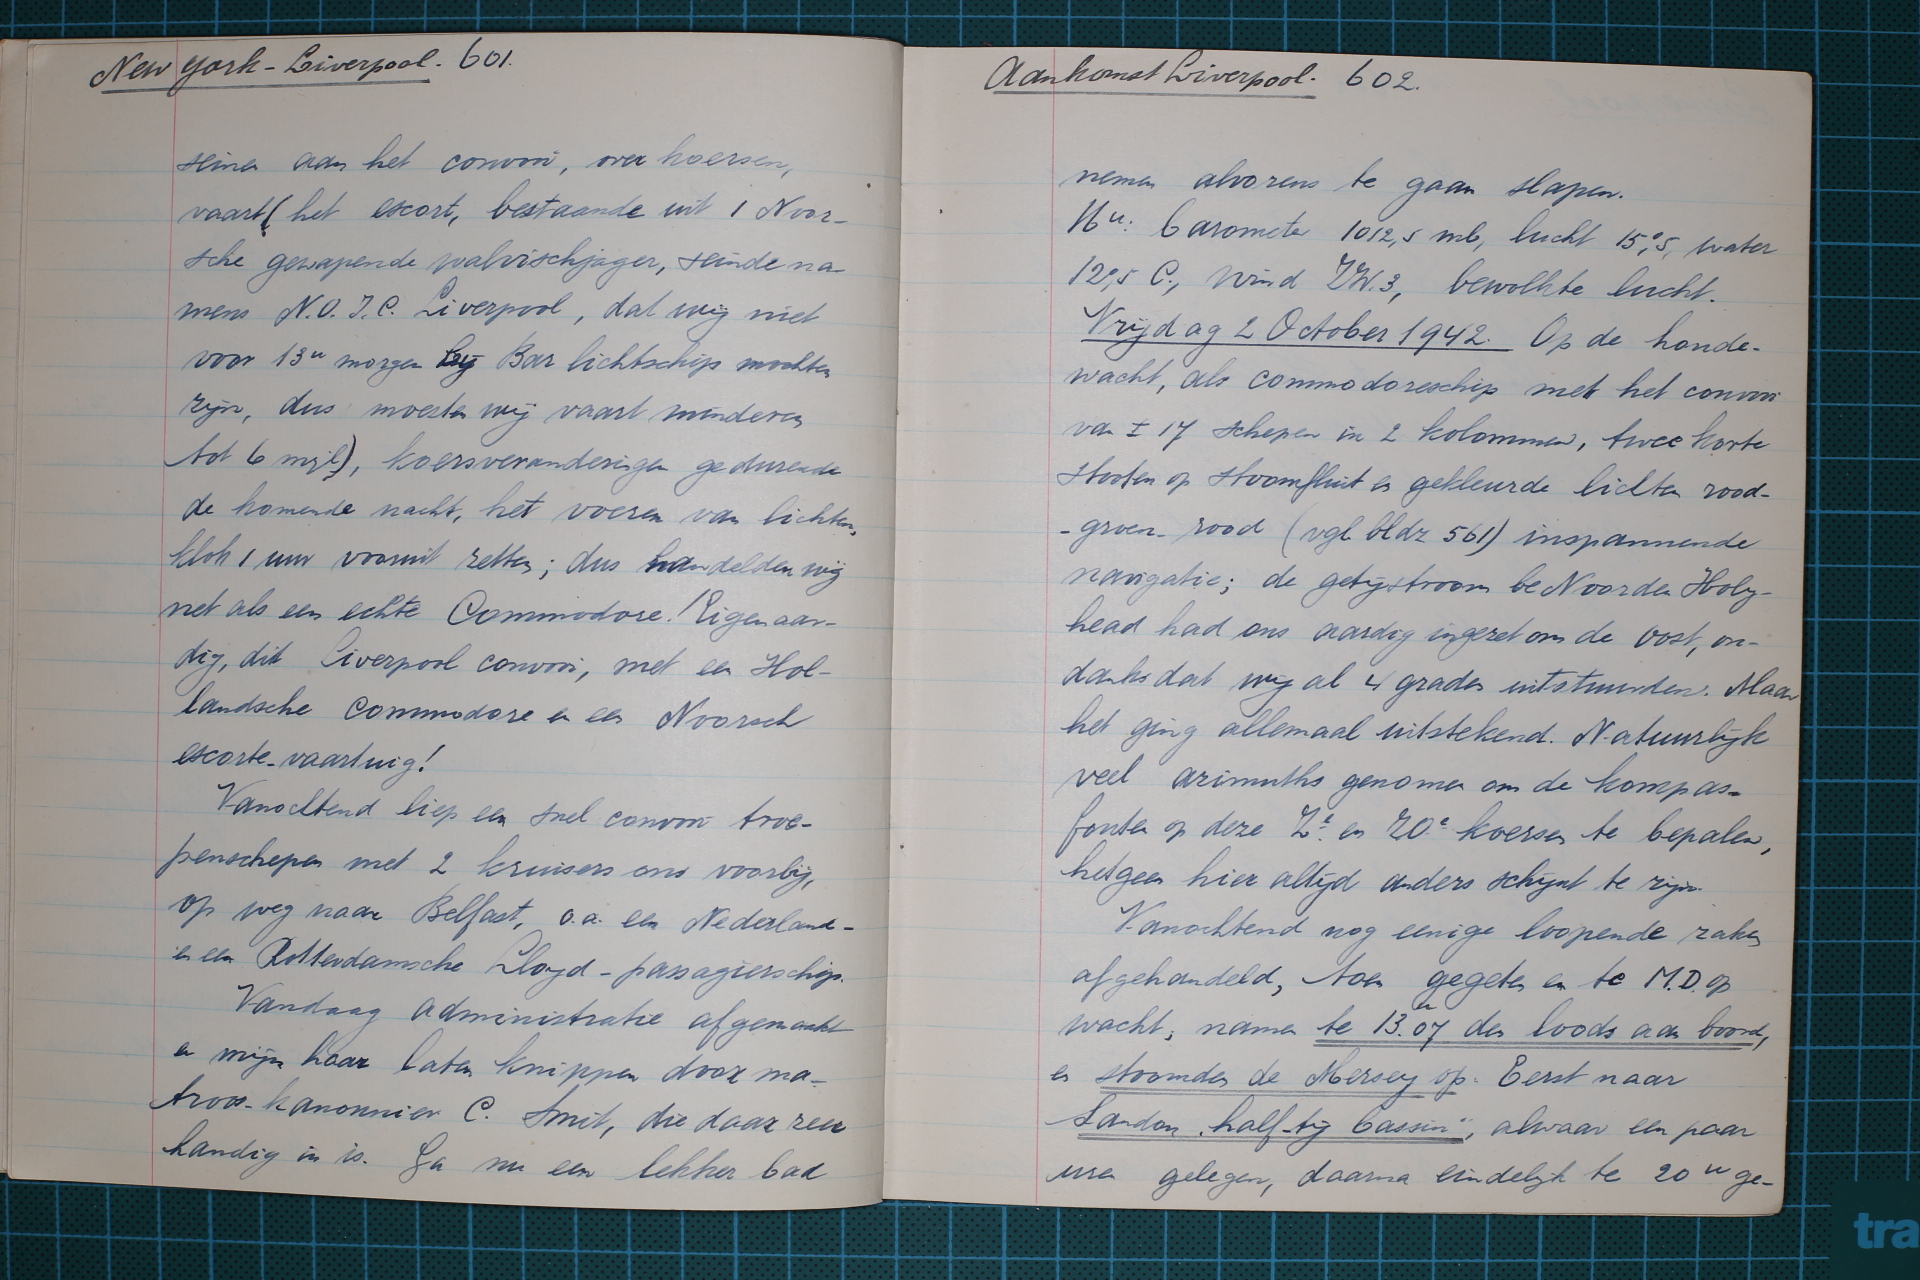 New York - Liverpool. 601.
seinen aan het convooi, over koersen,
vaart (het escort, bestaande uit 1 Noor-
sche gewapende walvischjager, seinde na-
mens N.O.I.C. Liverpool, dat wij niet
voor 13u morgen bij Bar lichtschip mochten
zijn, dus moesten wij vaart minderen
tot 6 mijl), koersveranderingen gedurende
de komende nacht, het voeren van lichten,
klok 1 uur vooruit zetten; dus handelden wij
net als een echte Commodore! Eigenaar-
dig, dit Liverpool convooi, met een Hol-
landsche commodore en een Noorsch
escorte-vaartuig!
Vanochtend liep een snel convooi troe-
penschepen met 2 kruisers ons voorbij,
op weg naar Belfast, o.a. een Nederland-
en een Rotterdamsche Lloyd-passagierschip.
Vandaag administratie afgemaakt
en mijn haar laten knippen door ma-
troos-kanonnier C. Smit, die daar zeer
handig in is. Ga nu een lekker bad
Aankomst Liverpool. 602.
nemen alvorens te gaan slapen.
16u: barometer 1012,5 mb, lucht 15°,5, water
12°,5 C., wind ZW.3, bewolkte lucht.
Vrijdag 2 October 1942. Op de honde-
wacht, als commodoreschip met het convooi
van ± 17 schepen in 2 kolommen, twee korte
stooten op stoomfluit en gekleurde lichten rood-
-groen-rood (vgl bldz 561) inspannende
navigatie; de getijstroom be Noorden Holy-
head had ons aardig ingezet om de oost, on-
danks dat wij al 4 graden uitstuurden. Maar
het ging allemaal uitstekend. Natuurlijk
veel azimuths genomen om de kompas-
fouten op deze Z.e en ZO.e koersen te bepalen,
hetgeen hier altijd anders schijnt te zijn.
Vanochtend nog eenige loopende zaken
afgehandeld, toen gegeten en te M.D. op
wacht; namen te 13.07u den loods aan boord,
en stoomden de Mersey op. Eerst naar
Sandon "half-tij bassin", alwaar een paar
uren gelegen, daarna eindelijk te 20u ge-
tra